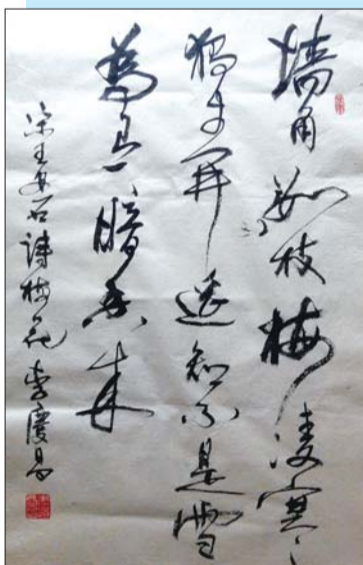 墙角数枝梅凌寒
獨自開遥知不是雪
為有暗香来
宋王安石詩梅花 李慶